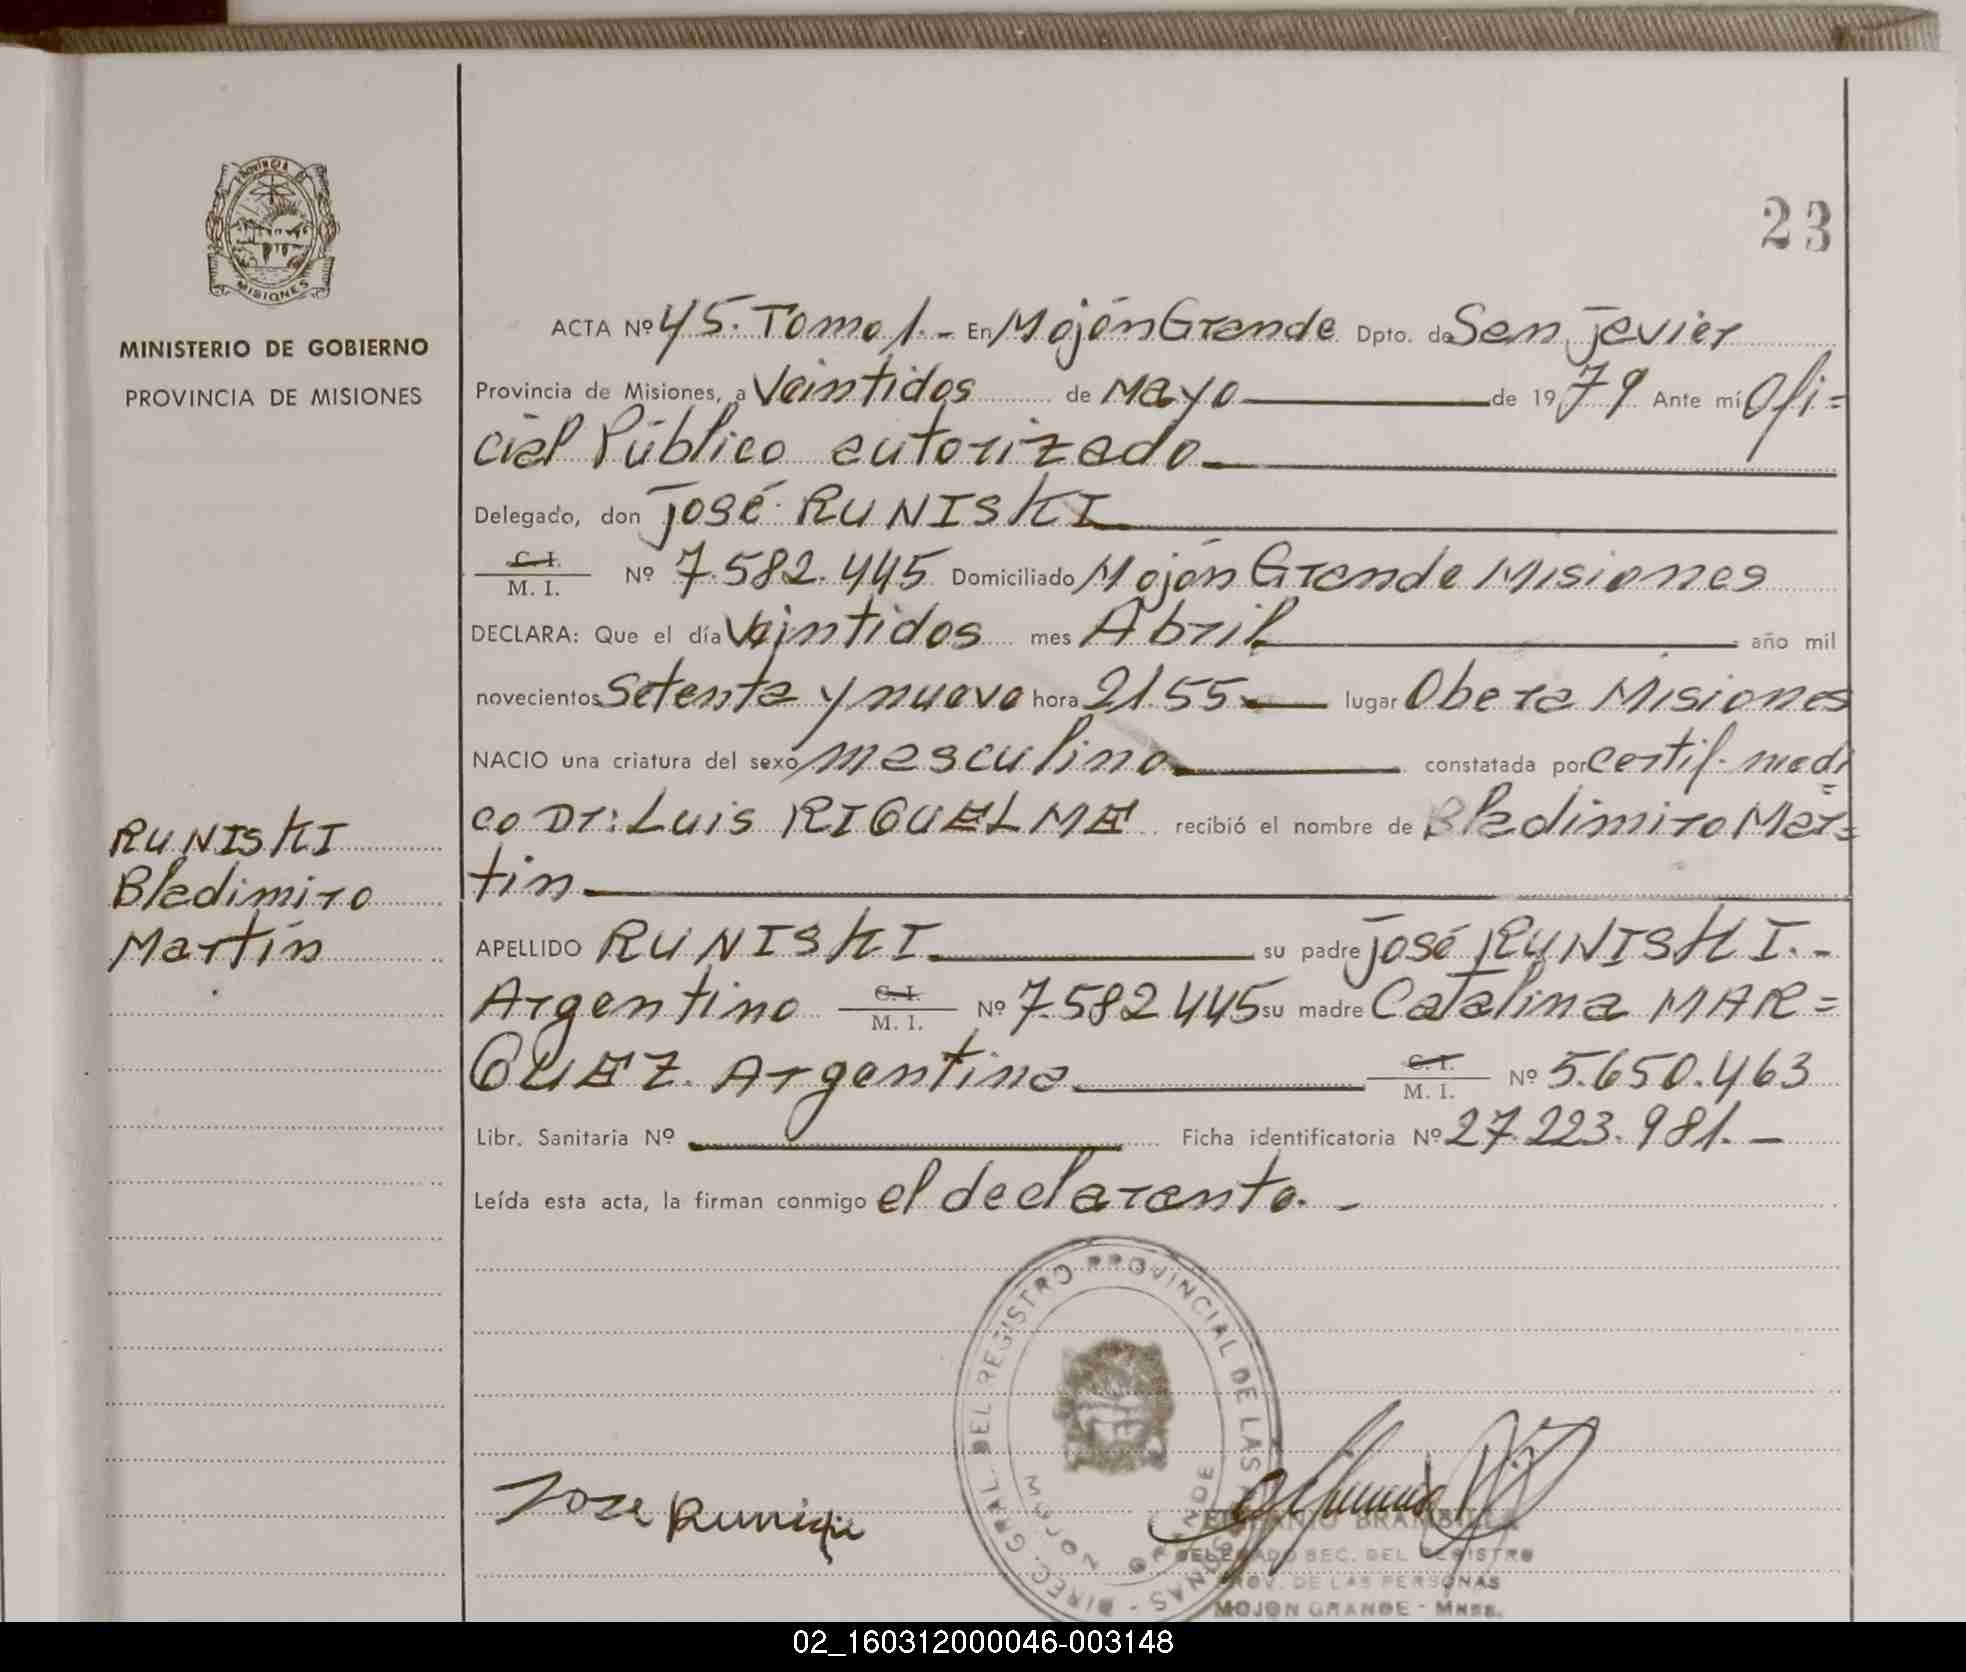 PROVINCIA DE
MISIONES
MINISTERIO DE GOBIERNO
PROVINCIA DE MISIONES
RUNISKI
Bladimiro
Martín
23
ACTA Nº 45. Tomo 1.- En Mojón Grande Dpto. de San Javier
Provincia de Misiones, a Veintidos de Mayo de 1979 Ante mí Ofi=
cial Público autorizado
Delegado, don José RUNISKI
C. I.
M. I. Nº 7.582.445 Domiciliado Mojón Grande Misiones
DECLARA: Que el día Veintidos mes Abril año mil
novecientos Setenta y nueve hora 21.55 lugar Obera Misiones
NACIO una criatura del sexo masculino constatada por certif. medi=
co Dr: Luis RIQUELME recibió el nombre de Bladimiro Mar=
tin
APELLIDO RUNISKI su padre José RUNISKI.-
Argentino C. I. M. I. Nº 7.582 445 su madre Catalina MAR=
QUEZ. Argentina C. I. M. I. Nº 5.650.463
Libr. Sanitaria Nº Ficha identificatoria Nº 27.223.981.-
Leída esta acta, la firman conmigo el declarante.-
DIREC. GRAL. DEL REGISTRO PROVINCIAL DE LAS PERSONAS
MOJON GRANDE
Jose
DELEGADO SEC. DEL REGISTRO
PROV. DE LAS PERSONAS
MOJON GRANDE - Mnes.
02_160312000046-003148